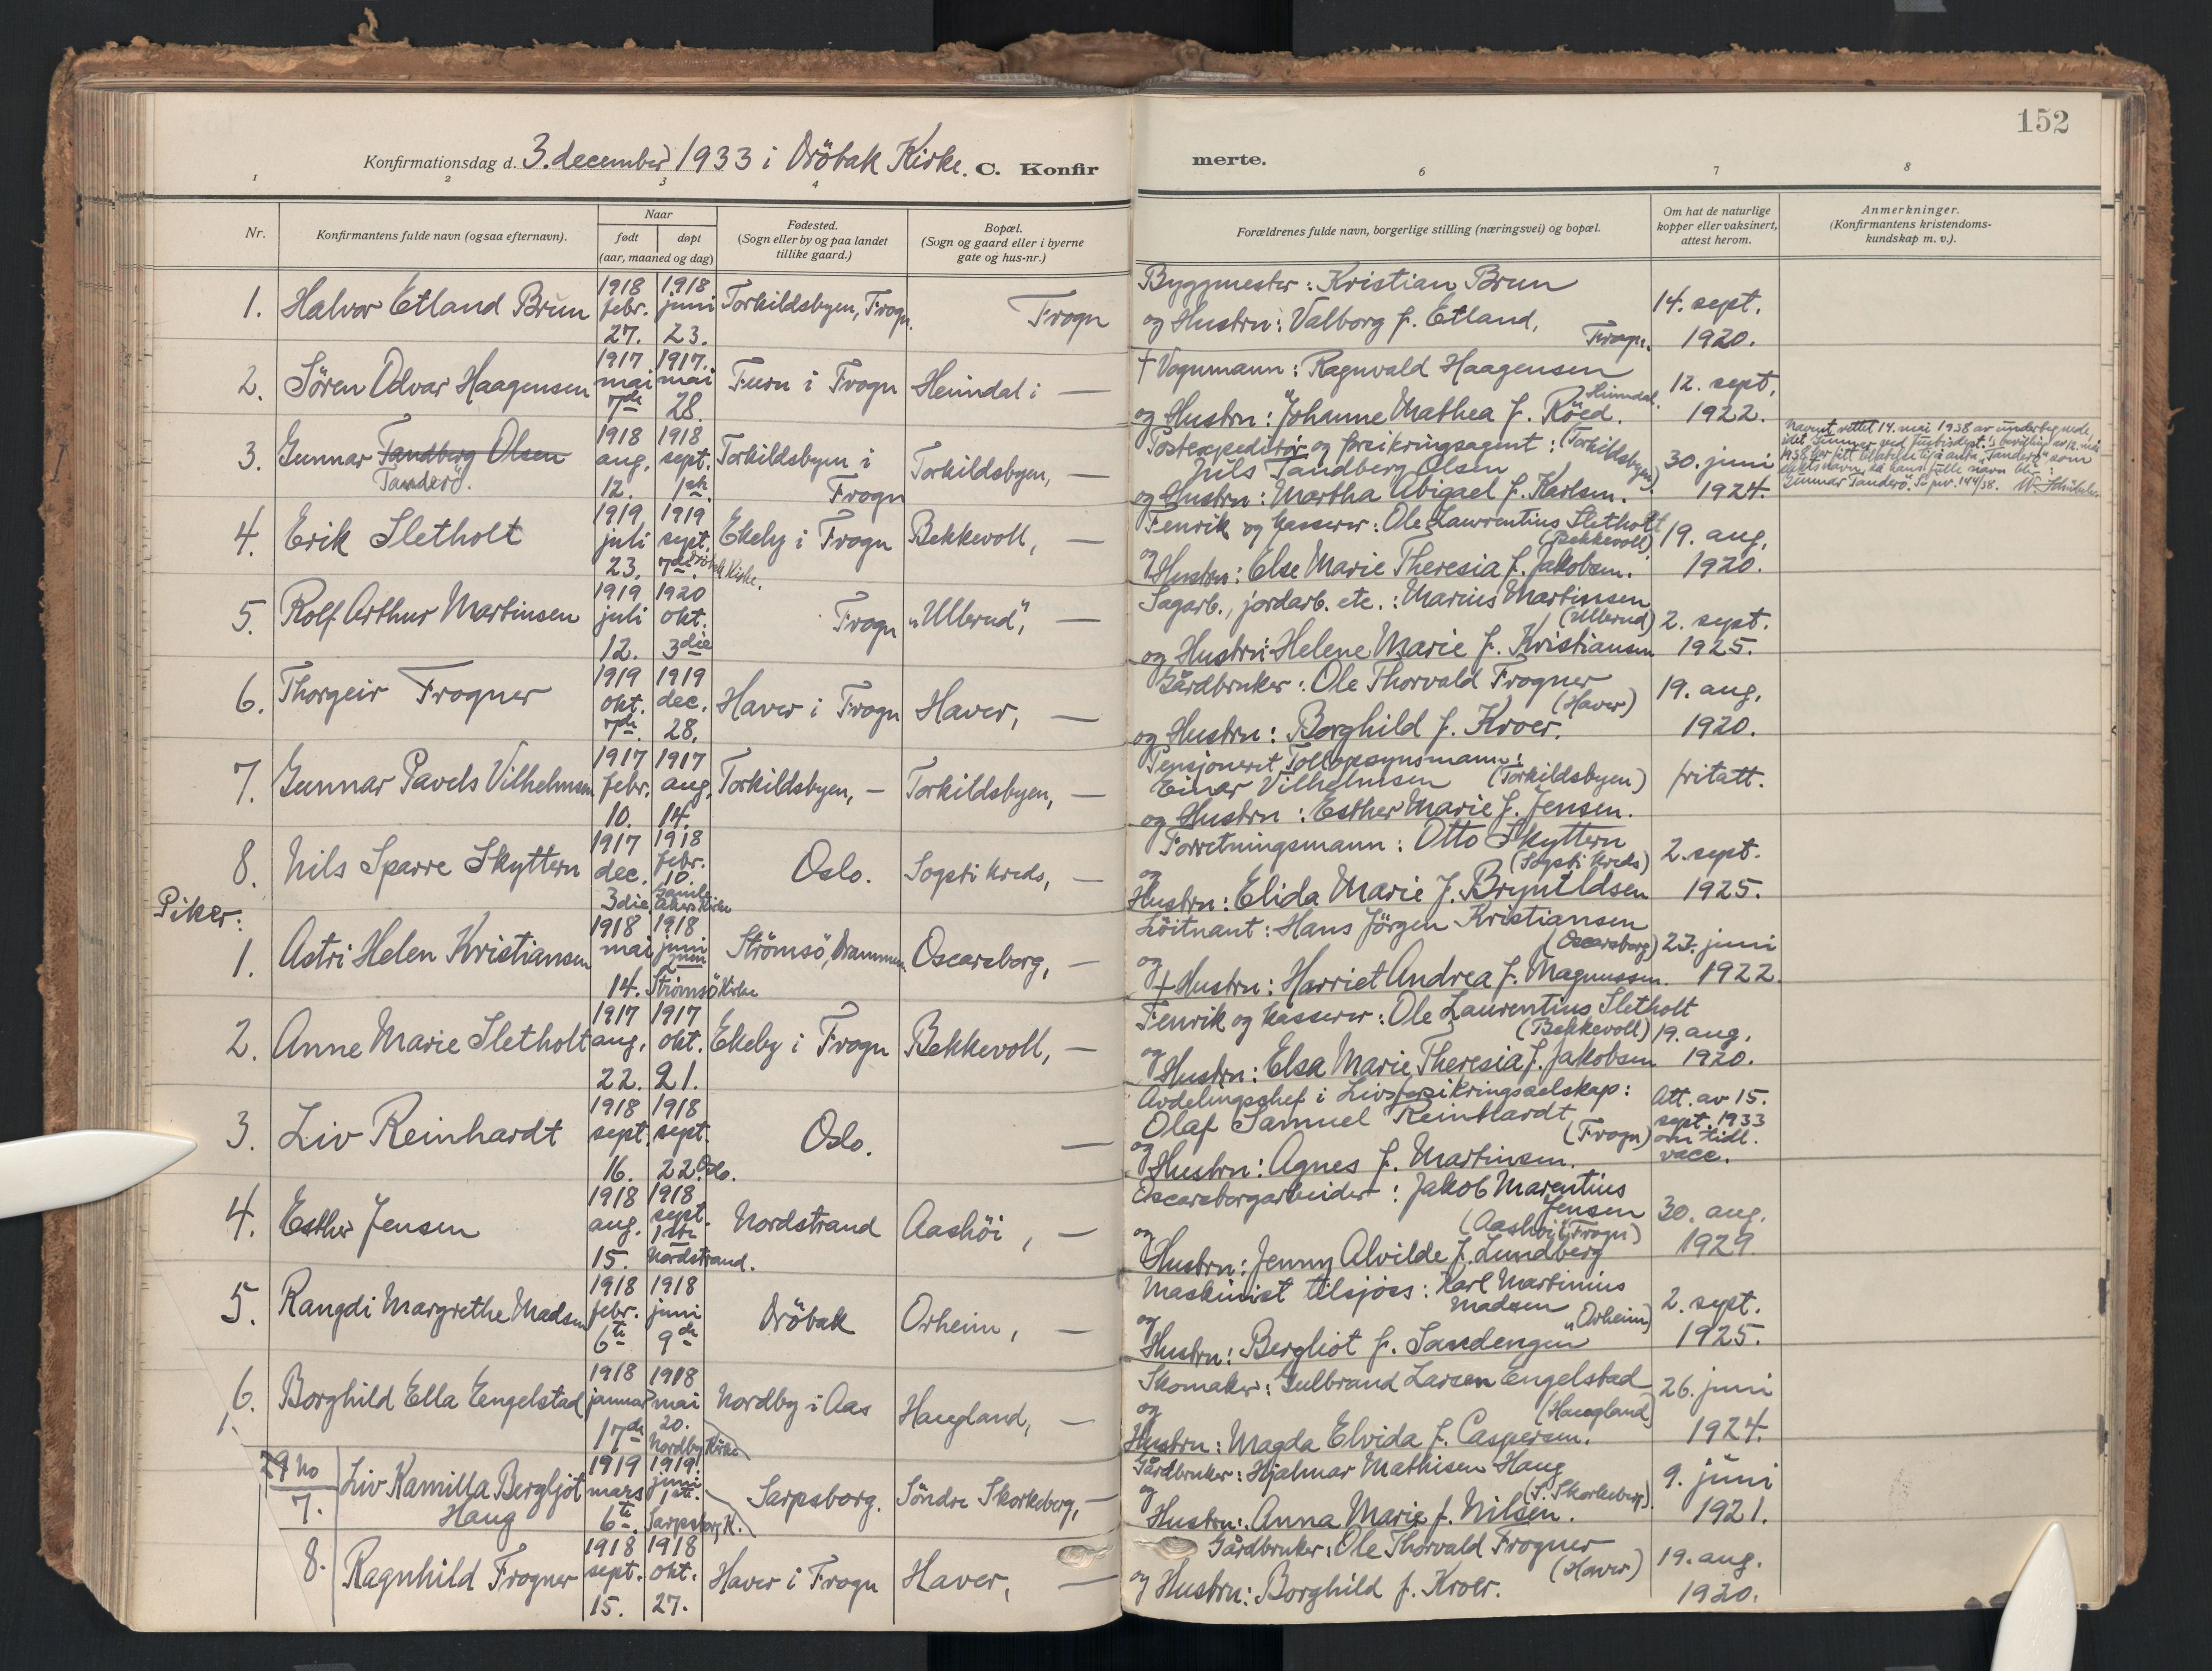 152
Konfirmationsdag d. 3. december 1933 i Dröbak Kirke. C. Konfirmerte.
1 2 3 4 6 7 8
Nr.
Konfirmantens fulde navn (ogsaa efternavn).
Naar
født
døpt
(aar, maaned og dag)
Fødested.
(Sogn eller by og paa landet
tillike gaard.)
Bopæl.
(Sogn og gaard eller i byerne
gate og hus-nr.)
Forældrenes fulde navn, borgerlige stilling (næringsvei) og bopæl.
Om hat de naturlige
kopper eller vaksinert,
attest herom.
Anmerkninger.
(Konfirmantens kristendoms-
kundskap m. v.).
1. Halvor Etland Brun
1918 febr. 27.
1918 juni 23.
Torkildsbyen, Frogn.
Frogn
Byggmester: Kristian Brun
og Hustru: Valborg f. Etland,
Frogn.
14. sept.
1920.
2. Søren Odvar Haagensen
1917 mai 7de
1917. mai 28.
Furu i Frogn
Heimdal i —
† Vognmann: Ragnvald Haagensen
Heimdal.
og Hustru: Johanne Mathea f. Röed.
12. sept.
1922.
3. Gunnar Tandberg Olsen
Tanderö.
1918 aug. 12.
1918 sept. 1ste
Torkildsbyen i
Frogn
Torkildsbyen, —
Postexpeditör og forsikringsagent: (Torkildsbyen)
Nils Tandberg Olsen
og Hustru: Martha Abigael f. Karlsen.
30. juni
1924.
Navnet rettet 14. mai 1938 av undertegnede,
idet Gunnar ved
1938 har fått tillatelse til å anta "Tanderö" som
slektsnavn, så hans fulle navn blir:
Gunnar Tanderö. 144/38.
4. Erik Sletholt
1919 juli 23.
1919 sept. 7de Dröbak Kirke.
Ekeby i Frogn
Bekkevoll, —
Fenrik og kasserer: Ole Laurentius Sletholt
(Bekkevoll)
og Hustru: Else Marie Theresia f. Jakobsen.
19. aug.
1920.
5. Rolf Arthur Martinsen
1919 juli 12.
1920 okt. 3die
Frogn
"Ullerud", —
Sagarb., jordarb. etc.: Marius Martinsen
(Ullerud)
og Hustru: Helene Marie f. Kristiansen
2. sept.
1925.
6. Thorgeir Frogner
1919 okt. 7de.
1919 dec. 28.
Haver i Frogn
Haver, —
Gårdbruker: Ole Thorvald Frogner
(Haver)
og Hustru: Borghild f. Kroer.
19. aug.
1920.
7. Gunnar Pavels Vilhelmsen
1917 febr. 10.
1917 aug. 14.
Torkildsbyen, —
Torkildsbyen, —
Pensjoneret Tollopsynsmann:
Einar Vilhelmsen (Torkildsbyen)
og Hustru: Esther Marie f. Jensen.
fritatt.
8. Nils Sparre Skyttern
1917 dec. 3die
1918 febr. 10. Gamle Aker Kirke
Oslo.
Sogsti Kreds, —
Forretningsmann: Otto Skyttern
(Sogsti Kreds)
og
Hustru: Elida Marie f. Bryntldsen
2. sept.
1925.
Piker:
1. Astri Helen Kristiansen
1918 mai 14.
1918 juni Strömsö Kirke
Strömsö, Drammen
Oscarsborg, —
Löitnant: Hans Jörgen Kristiansen
(Oscarsborg)
og
† Hustru: Harriet Andrea f. Magnussen.
23. juni
1922.
2. Anne Marie Sletholt
1917 aug. 22.
1917 okt. 21.
Ekeby i Frogn
Bekkevoll, —
Fenrik og kasserer: Ole Laurentius Sletholt
(Bekkevoll)
og
Hustru: Elsa Marie Theresia f. Jakobsen
19. aug.
1920.
3. Liv Reinhardt
1918 sept. 16.
1918 sept. 22. Oslo.
Oslo.
—
Avdelingschef i Livsforsikringsselskap:
Olaf Samuel Reinhardt
(Frogn)
og
Hustru: Agnes f. Martinsen.
Att. av 15.
sept. 1933
om tidl.
vacc.
4. Esther Jensen
1918 aug. 15.
1918 sept. 1ste Nordstrand.
Nordstrand
Aashöi, —
Oscarsborgarbeider: Jakob Marentius
Jensen
(Aashöi (Frogn)
og
Hustru: Jenny Alvilde f. Lundberg
30. aug.
1929.
5. Rangdi Margrethe Madsen
1918 febr. 6te
1918 juni 9de
Dröbak
Orheim, —
Maskinist tilsjöss: Karl Martinius
Madsen "Orheim)
og
Hustru: Bergliot f. Sandengen
2. sept.
1925.
6. Borghild Ella Engelstad
1918 januar 17de
1918 mai 20. Nordby Kirke
Nordby i Aas
Haugland, —
Skomaker: Gulbrand Larsen Engelstad
(Haugland)
og
Hustru: Magda Elvida f. Caspersen.
26. juni
1924.
7. Liv Kamilla Bergljot
Haug
1919 mars 6te
1919. juni 1ste. Sarpsborg K.
Sarpsborg.
Söndre Skorkeberg, —
Gårdbruker: Hjalmar Mathisen Haug
(S. Skorkeberg).
og
Hustru: Anna Marie f. Nilsen.
9. juni
1921.
8. Ragnhild Frogner
1918 sept. 15.
1918 okt. 27.
Haver i Frogn
Haver, —
Gårdbruker: Ole Thorvald Frogner
(Haver)
og Hustru: Borghild f. Kroer.
19. aug.
1920.